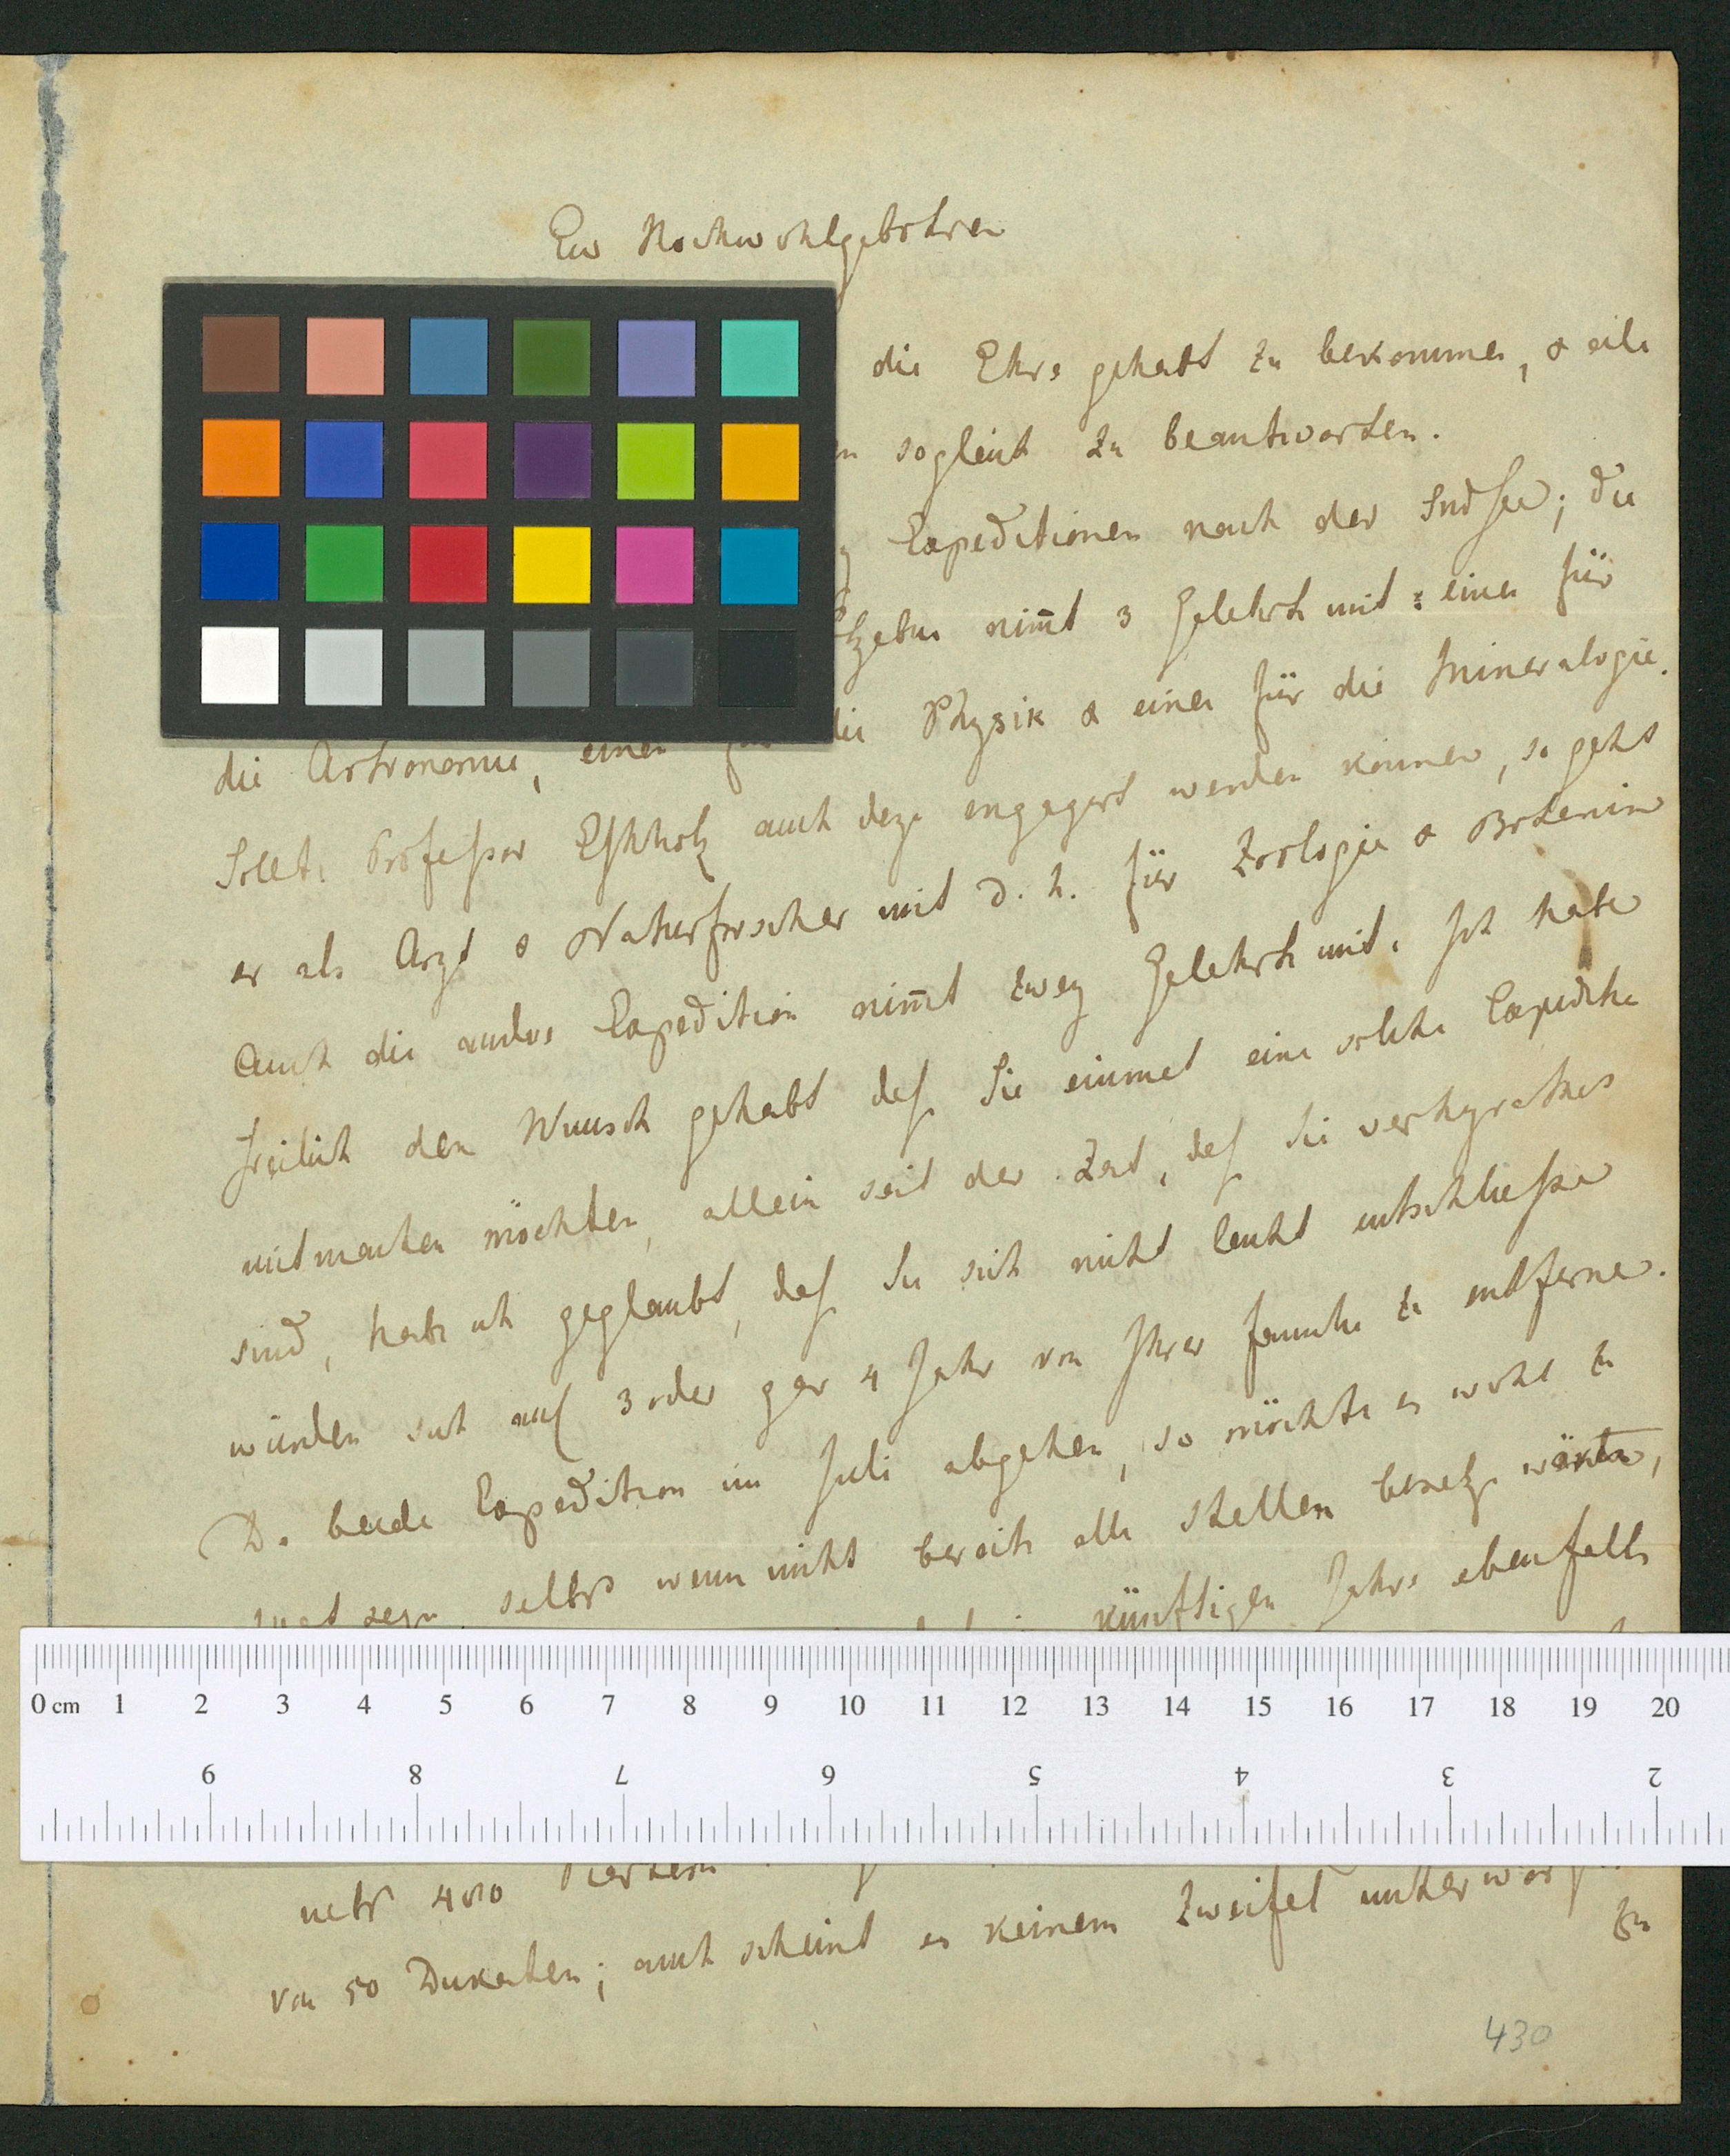 Ew Hochwohlgebohren
die Ehre gehabt zu bekommen, & eile
sogleich zu beantworten.
Expeditionen nach der Südsee; die
tzebue nim̄t 3 Gelehrte mit: einen für
die Astronomie, einen die Physik & einen für die Mineralogie.
Sollte Professor Eschholz auch dazu engagirt werden können, so geht
er als Arzt & Naturforscher mit d. h. für Zoologie & Botanik
Auch die andre Expedition nim̄t zwey Gelehrte mit. Ich habe
freilich den Wunsch gehabt daß Sie einmal eine solche Expedition
mitmachen möchten, allein seit der Zeit, daß Sie verheyrathet
sind, habe ich geglaubt, daß Sie sich nicht leicht entschließen
würden sich auf 3 oder gar 4 Jahr von Ihrer Familie zu entfernen.
Da beide Expedition im Juli abgehen, so möchte es wohl zu
spät seyn, selbst wenn nicht bereits alle Stellen besetzt wären,
künftigen Jahrs ebenfalls
0 cm 1 2 3 4 5 6 7 8 9 10 11 12 13 14 15 16 17 18 19 20
9 8 7 6 5 4 3 2
nebst 400
von 50 Dukaten; auch scheint es keinem Zweifel unterworfen
zu
430